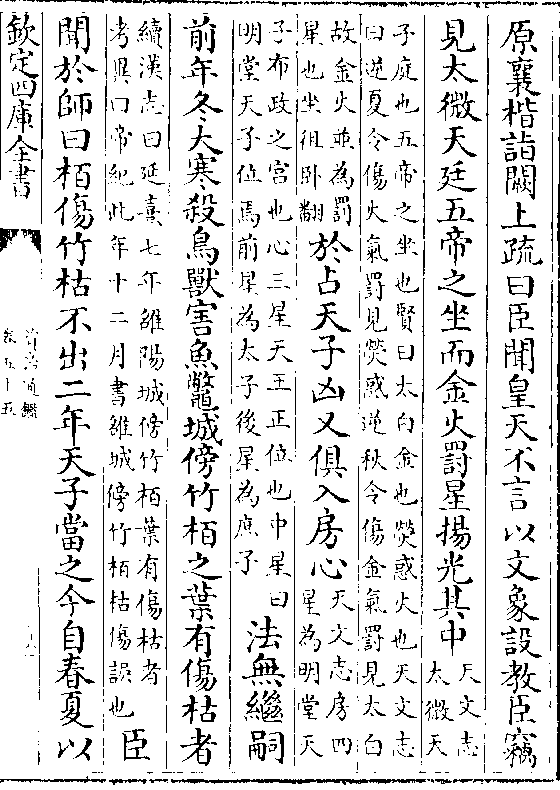 原襄楷詣闕上疏曰臣聞皇天不言以文象設教臣竊
見太微天廷五帝之坐而金火罰星揚光其中天文志太微天
子庭也五帝之坐也賢曰太白金也熒惑火也天文志
曰逆夏令傷火氣罰見熒惑逆秋令傷金氣罰見太白
故金火並為罰
星也坐徂卧翻於占天子凶又俱入房心天文志房四星為明堂天
子布政之宫也心三星天王正位也中星曰
明堂天子位焉前星為太子後星為庶子法無繼嗣
前年冬大寒殺鳥獸害魚鼈城傍竹柏之葉有傷枯者
續漢志曰延熹七年雒陽城傍竹柏葉有傷枯者
考異曰帝紀此年十二月書雒城傍竹柏枯傷誤也臣
聞於師曰柏傷竹枯不出二年天子當之今自春夏以
欽定四庫全書
資治通鑑
卷五十五